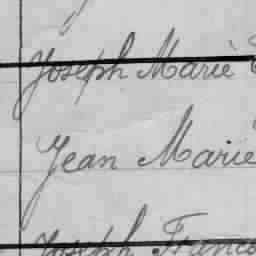 Joseph Marie
Jean Marie
Joseph